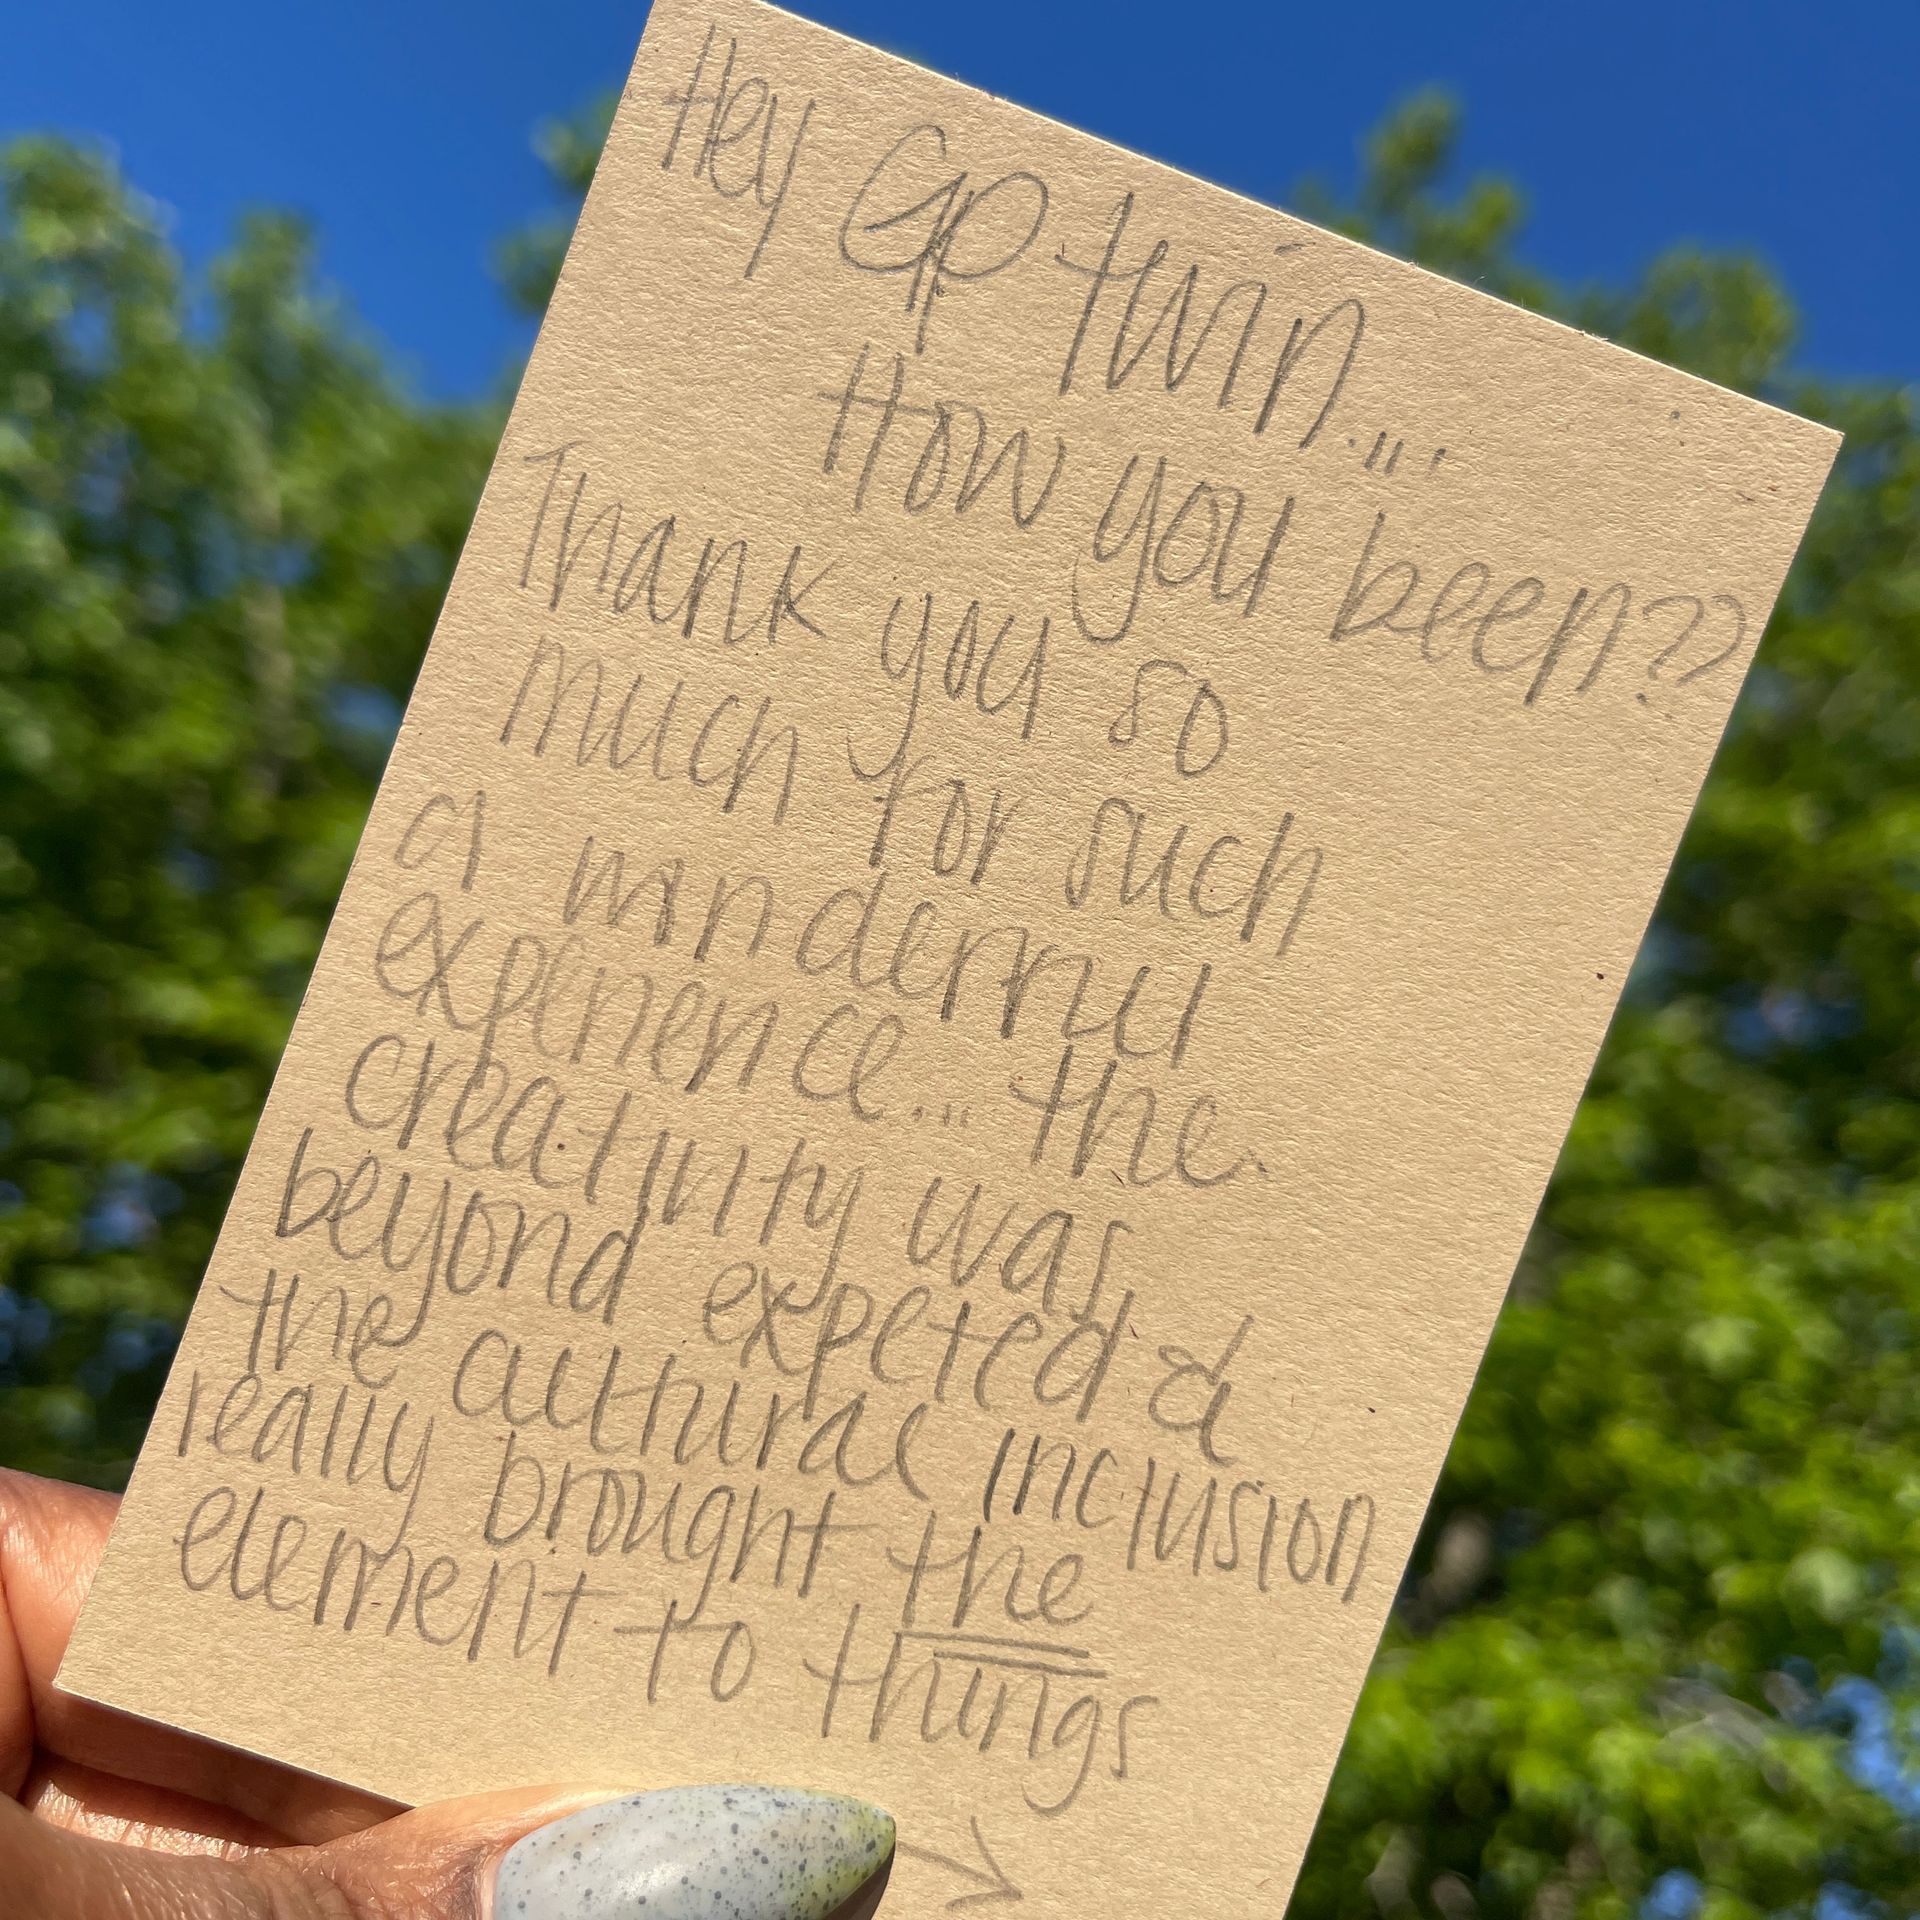 Hey GP twin....
How you been??
Thank you so
much for such
a wonderful
experience... the
creativity was
beyond expeted &
the cultural inclusion
really brought the
element to things
→